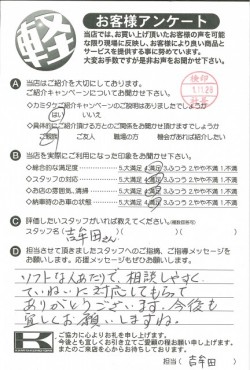 軽
お客様アンケート
当店では、お買い上げ頂いたお客様の声を可能
な限り現場に反映し、お客様により良い商品と
サービスを提供する事に努めています。
大変お手数ですが是非お声をお聞かせ下さい。
検印
1.11.29
Ⓐ 当店はご紹介を大切にしております。
ご紹介キャンペーンについてお聞かせ下さい。
・カミタケご紹介キャンペーンのご説明はありましたでしょうか
はい いいえ
・具体的にご紹介頂ける方との関係をお聞かせ頂けますでしょうか
ご親族 友人 職場の方 機会があれば紹介したい
Ⓑ 当店を実際にご利用になった印象をお聞かせ下さい。
・総合的な満足度 5.大満足 4.満足 3.ふつう 2.やや不満 1.不満
・スタッフの対応 5.大満足 4.満足 3.ふつう 2.やや不満 1.不満
・お店の雰囲気、清掃 5.大満足 4.満足 3.ふつう 2.やや不満 1.不満
・納車時のお車の状態 5.大満足 4.満足 3.ふつう 2.やや不満 1.不満
Ⓒ 評価したいスタッフがいれば教えてください。(複数回答可)
スタッフ名( 吉牟田さん )
Ⓓ 担当させて頂きましたスタッフへのご指摘、ご指導メッセージを
お願いします。ご声援、応援メッセージもお聞かせ下さい。
ソフトな人あたりで、相談しやすく
ていねいに対応してもらって
ありがとうございます。今後も
宜しくお願いしますね。
K
ご協力に心よりお礼を申し上げます。
今後とも宜しくお引き立てご愛顧の程お願い申し上げます。
またのご来店を心からお待ちしております。
担当( 吉牟田 )